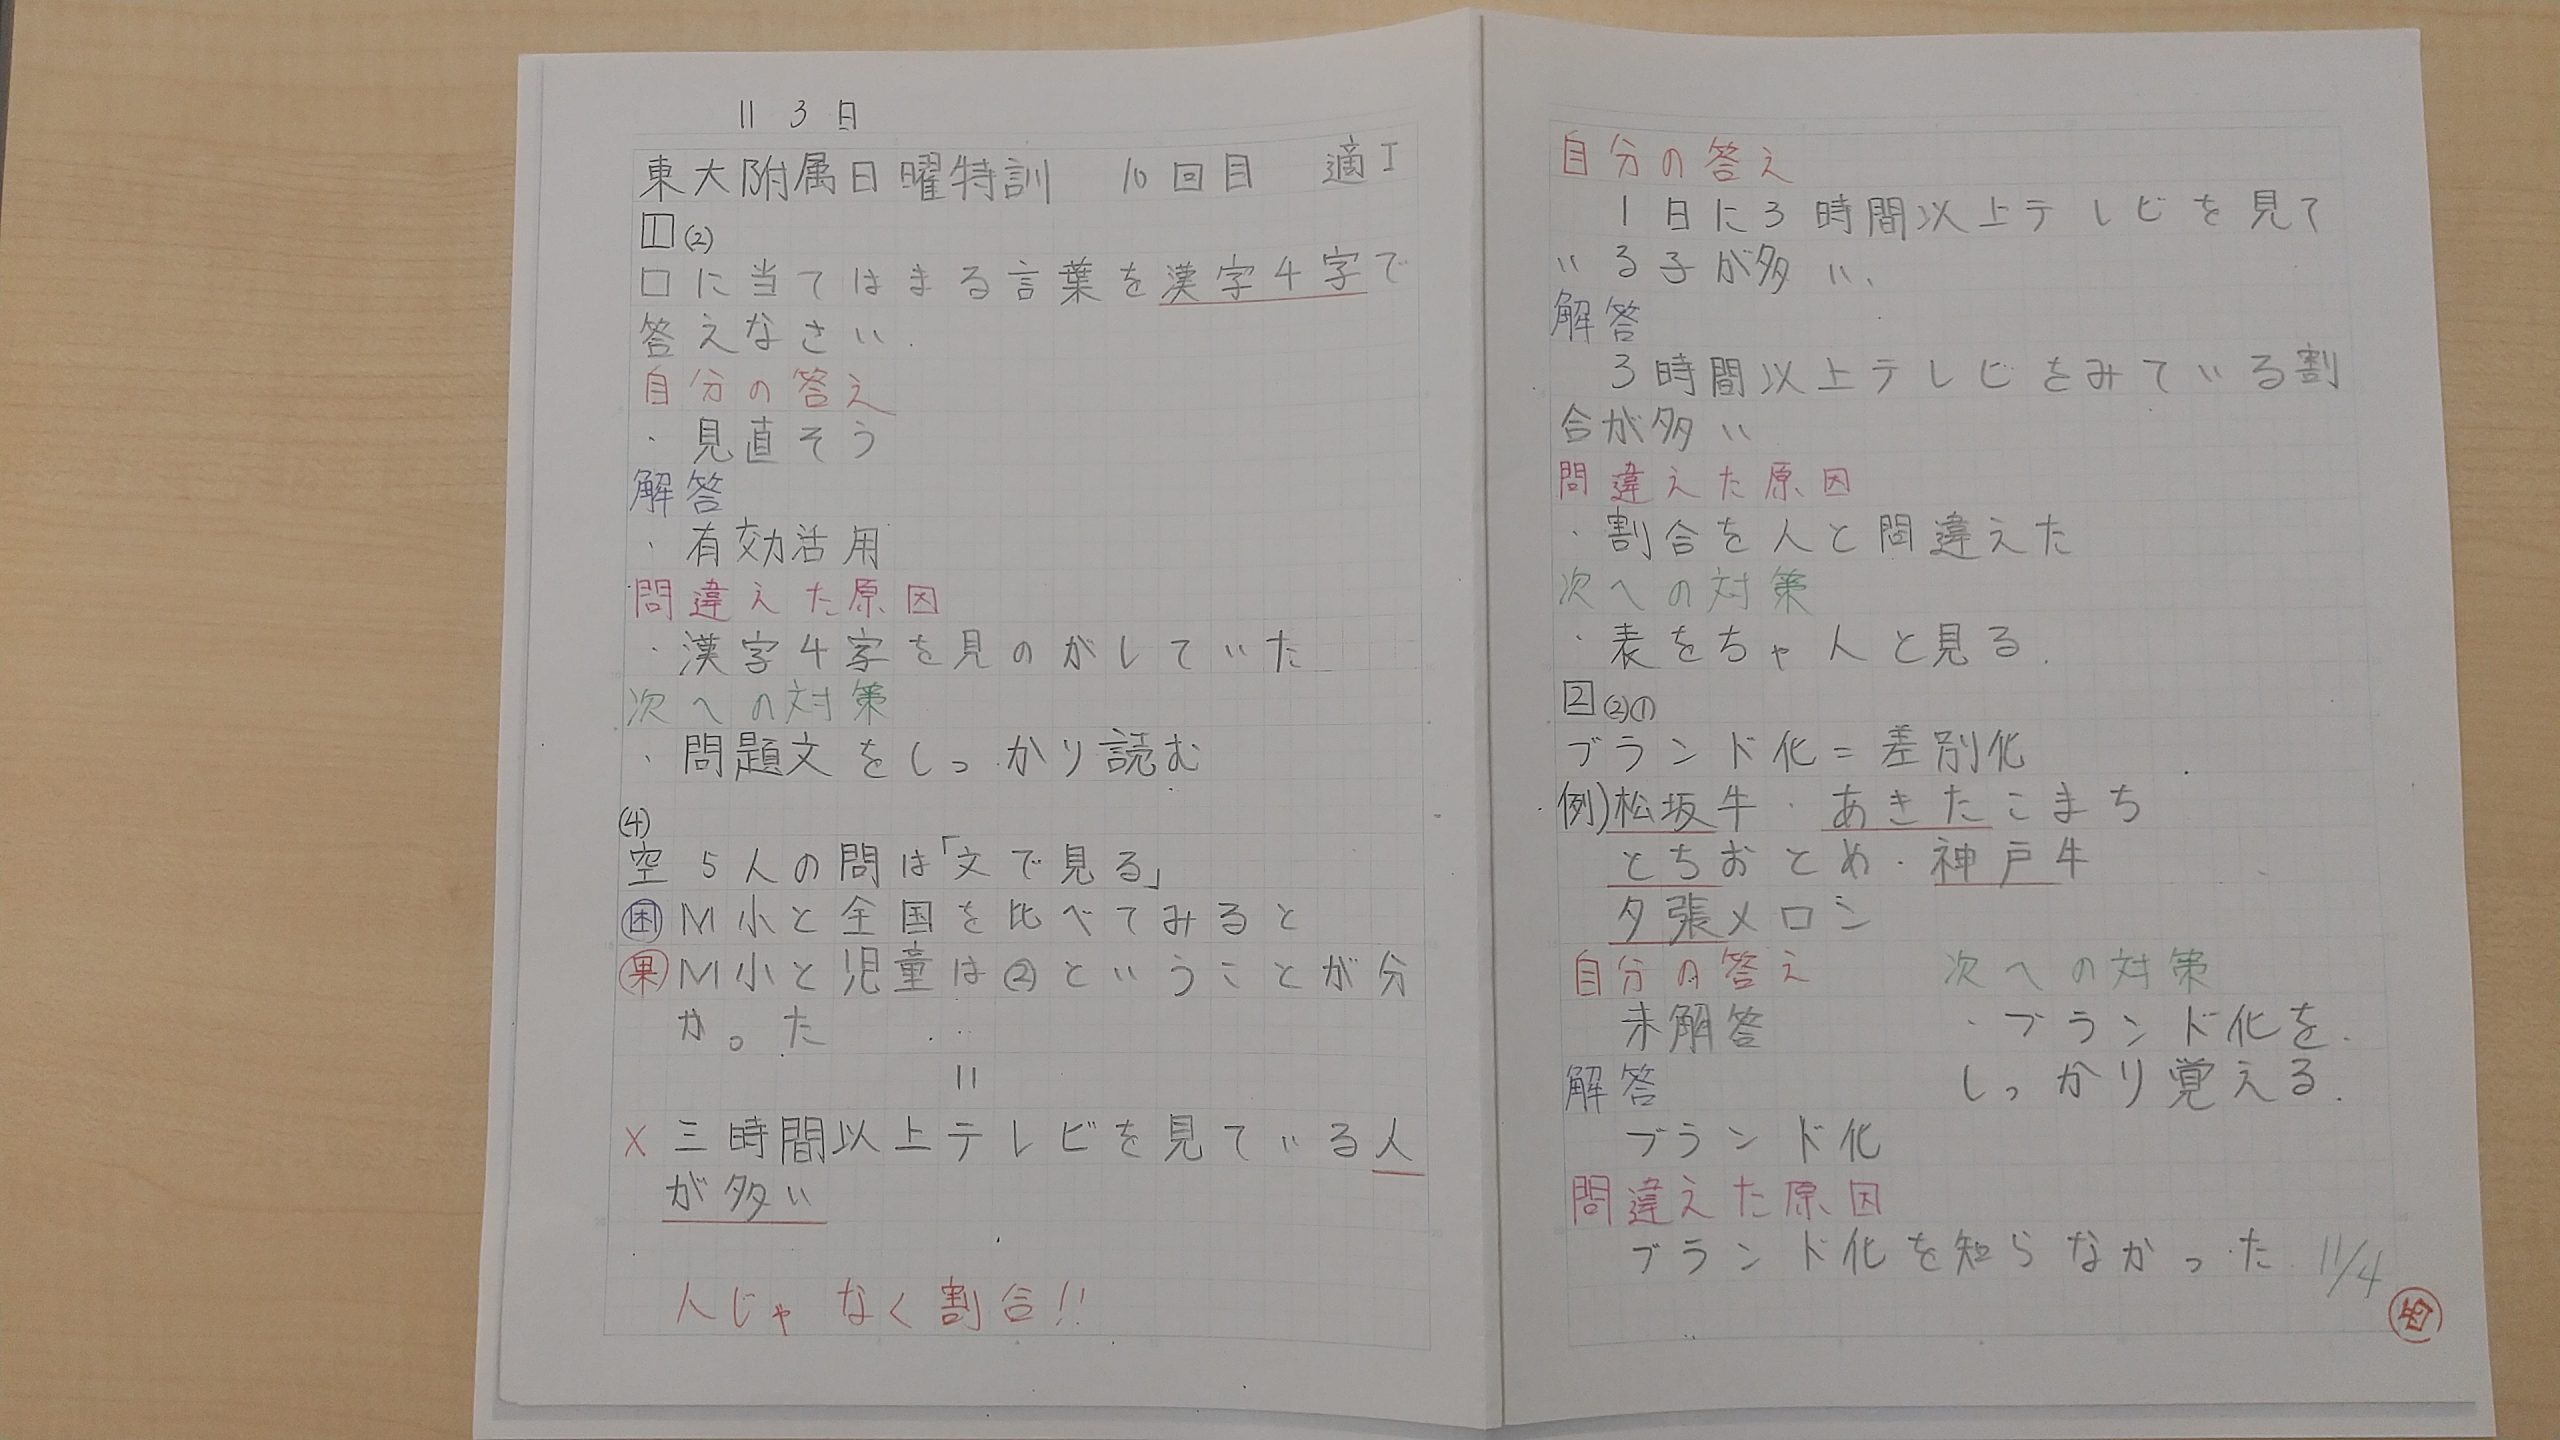 11 3 日
東大附属日曜特訓 10回目 適I
1(2)
口に当てはまる言葉を漢字4字で
答えなさい.
自分の答え
・見直そう
解答
・有効活用
問違えた原因
・漢字4字を見のがしていた
次への対策
・問題文をしっかり読む
(4)
空5人の問は「文で見る」
因 M小と全国を比べてみると
果 M小と児童は②ということが分
かった
=
×三時間以上テレビを見ている人
が多い
人じゃなく割合!!
自分の答え
1日に3時間以上テレビを見て
いる子が多い、
解答
3時間以上テレビをみている割
合が多い
問違えた原因
・割合を人と間違えた
次への対策
・表をちゃんと見る.
2(2)(1)
ブランド化=差別化
例)松坂牛・あきたこまち
とちおとめ・神戸牛
夕張メロン
自分の答え
未解答
解答
ブランド化
問違えた原因
ブランド化を知らなかった
次への対策
・ブランド化を
しっかり覚える.
11/4